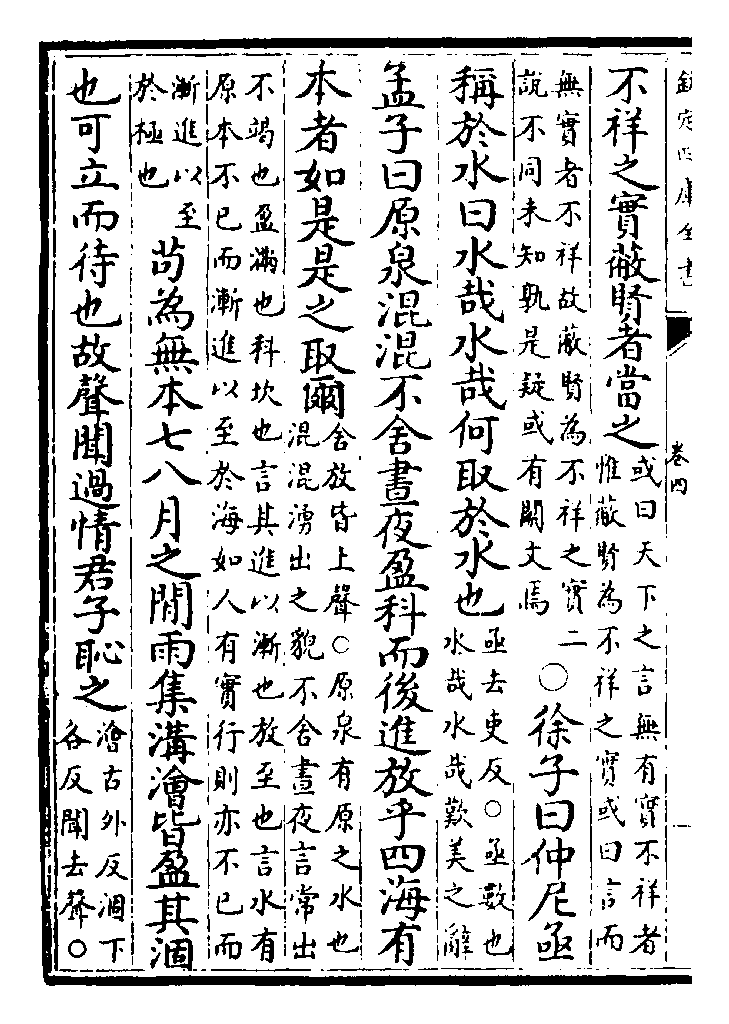 欽定四庫全書
卷四
不祥之實蔽賢者當之或曰天下之言無有實不祥者惟蔽賢為不祥之實或曰言而
無實者不祥故蔽賢為不祥之實二說不同未知孰是疑或有闕文焉○徐子曰仲尼亟
稱於水曰水哉水哉何取於水也亟去吏反○亟數也水哉水哉歎美之辭
孟子曰原泉混混不舍晝夜盈科而後進放乎四海有
本者如是是之取爾舍放皆上聲○原泉有原之水也混混湧出之貌不舍晝夜言常出
不竭也盈滿也科坎也言其進以漸也放至也言水有原本不已而漸進以至於海如人有實行則亦不已而
漸進以至於極也苟為無本七八月之間雨集溝澮皆盈其涸
也可立而待也故聲聞過情君子恥之澮古外反涸下各反聞去聲○